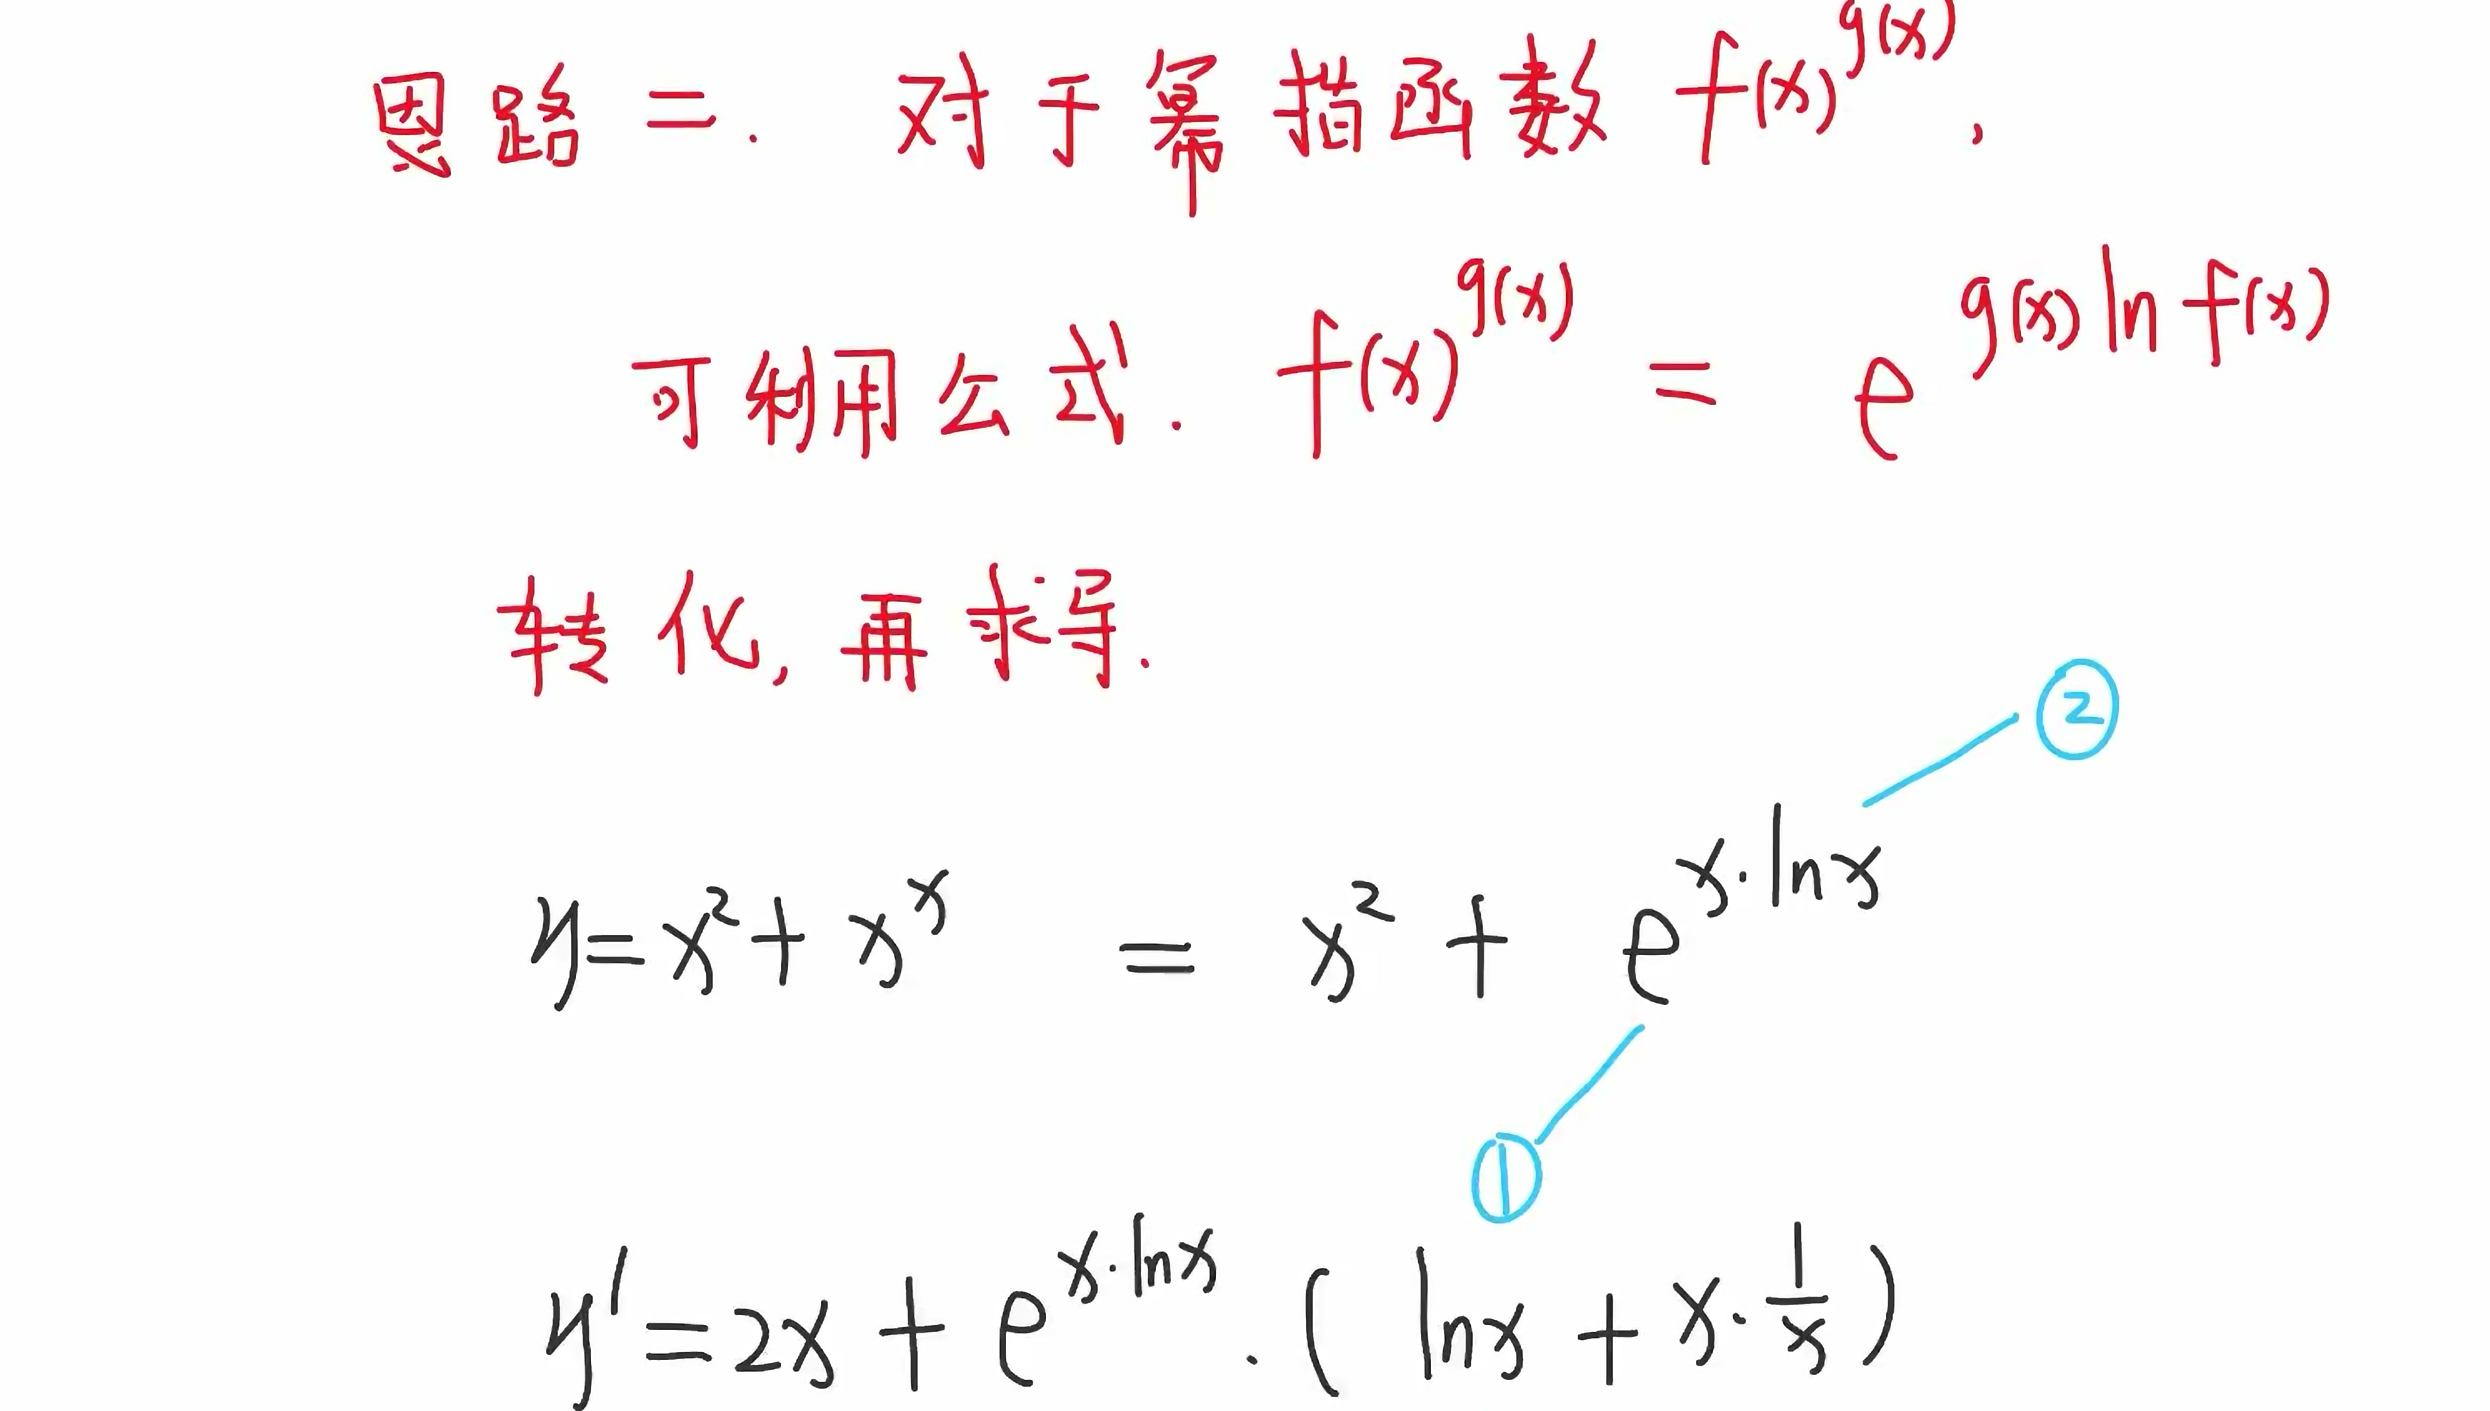 思路二. 对于幂指函数 f(x)^{g(x)},
可利用公式. f(x)^{g(x)} = e^{g(x) ln f(x)}
转化, 再求导.
②
y=x²+x^x = x² + e^{x·lnx}
①
y' = 2x + e^{x·lnx} · ( lnx + x·\frac{1}{x} )